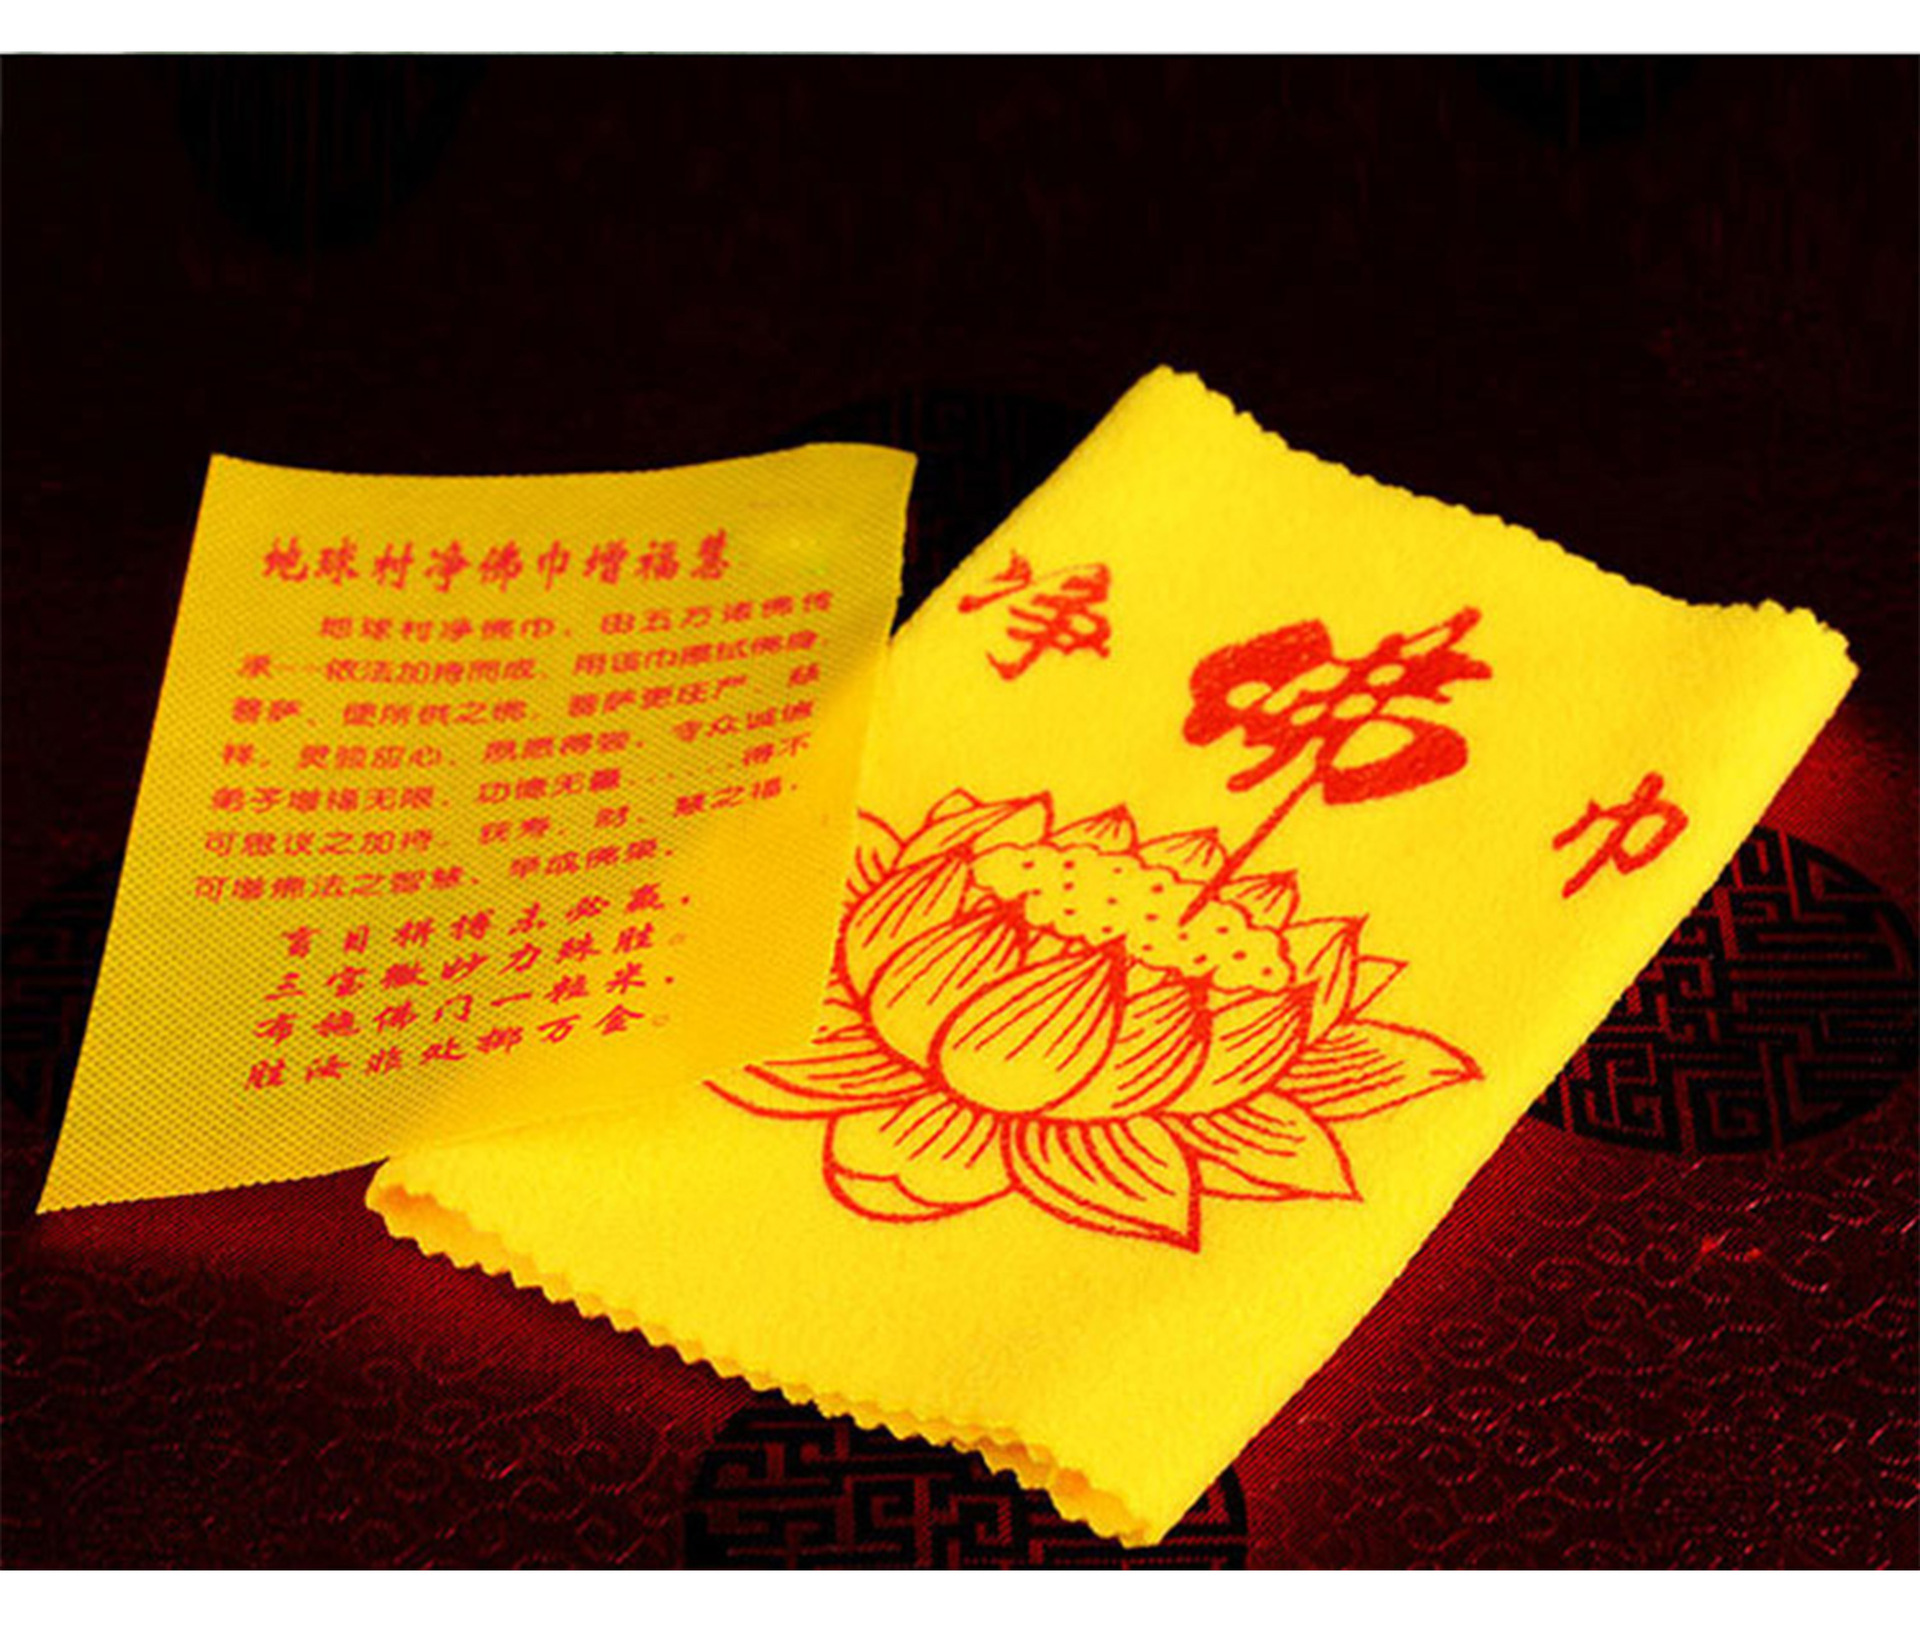 地球村净佛巾增福慧
地球村净佛巾,由五万诸佛传
承一一依法加持而成,用该巾擦拭佛身,
菩萨、使所供之佛,菩萨更庄严、慈
祥。灵验应心,思愿得强,令众诚信
弟子增福无限,功德无量......得不
可思议之加持,获寿、财、慧之福,
可增佛法之智慧、早成佛果.
盲目拼搏未必赢,
三宝微妙力殊胜。
布施佛门一粒米,
胜汝临处掷万金。
净佛巾